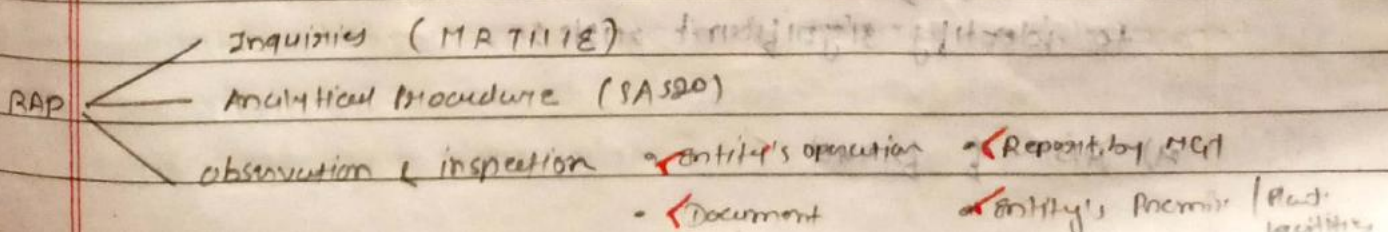 Inquiries (MRTIIIE)
RAP Analytical Procedure (SAS20)
observation & inspection • Entity's operation • Report by MGT
• Document • Entity's Premise / Plant
facilities